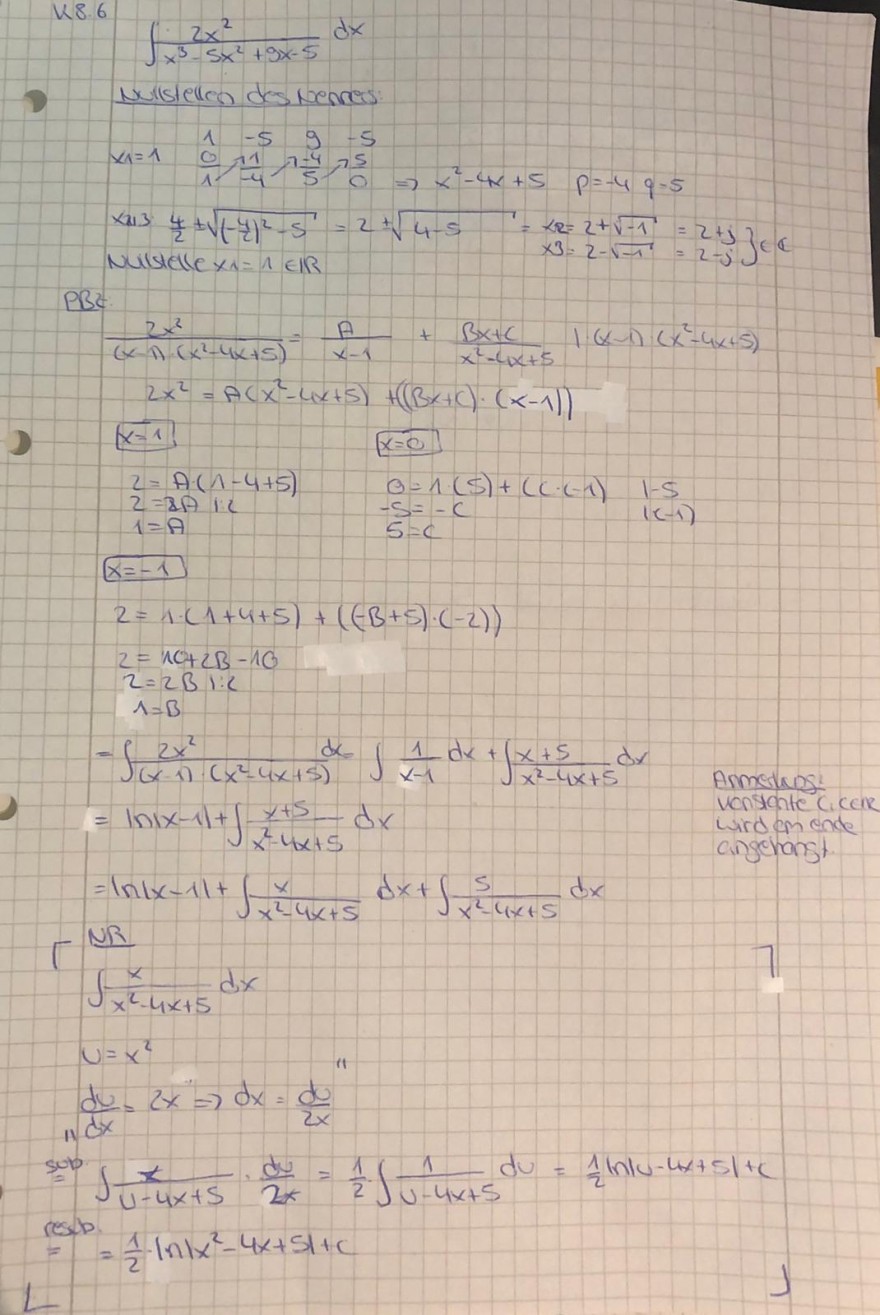 K8.6
∫ 2x² / (x³-5x²+9x-5) dx
Nullstellen des Nenners:
1 -5 9 -5
x1=1 0 1 -4 5
1 -4 5 0 => x²-4x+5 p=-4 q=5
4/2 ± √((-4/2)²-5) = 2 ± √(4-5) = x2= 2+√-1 = 2+j
x3= 2-√-1 = 2-j } ∈ ℂ
Nullstelle x1=1 ∈ℝ
PBZ:
2x² / ((x-1)·(x²-4x+5)) = A / (x-1) + (Bx+C) / (x²-4x+5) |·(x-1)·(x²-4x+5)
2x² = A(x²-4x+5) +((Bx+C)·(x-1))
x=1 x=0
2=A·(1-4+5) 0=1(5)+(C·(-1) |-5
2=2A |:2 -5=-C |(-1)
1=A 5=C
x=-1
2=1·(1+4+5)+((-B+5)·(-2))
2=10+2B-10
2=2B |:2
1=B
=∫ 2x² / ((x-1)·(x²-4x+5)) dx = ∫ 1/(x-1) dx + ∫ (x+5)/(x²-4x+5) dx
Anmerkung:
= ln|x-1|+∫ (x+5)/(x²-4x+5) dx
wird am ende
angehängt.
=ln|x-1|+∫ x/(x²-4x+5) dx+∫ 5/(x²-4x+5) dx
NR
∫ x/(x²-4x+5) dx
u=x²
"du/dx = 2x => dx = du/2x"
sub.
= ∫ x/(u-4x+5) · du/2x = 1/2 ∫ 1/(u-4x+5) du = 1/2 ln|u-4x+5|+c
resub.
= = 1/2·ln|x²-4x+5|+c